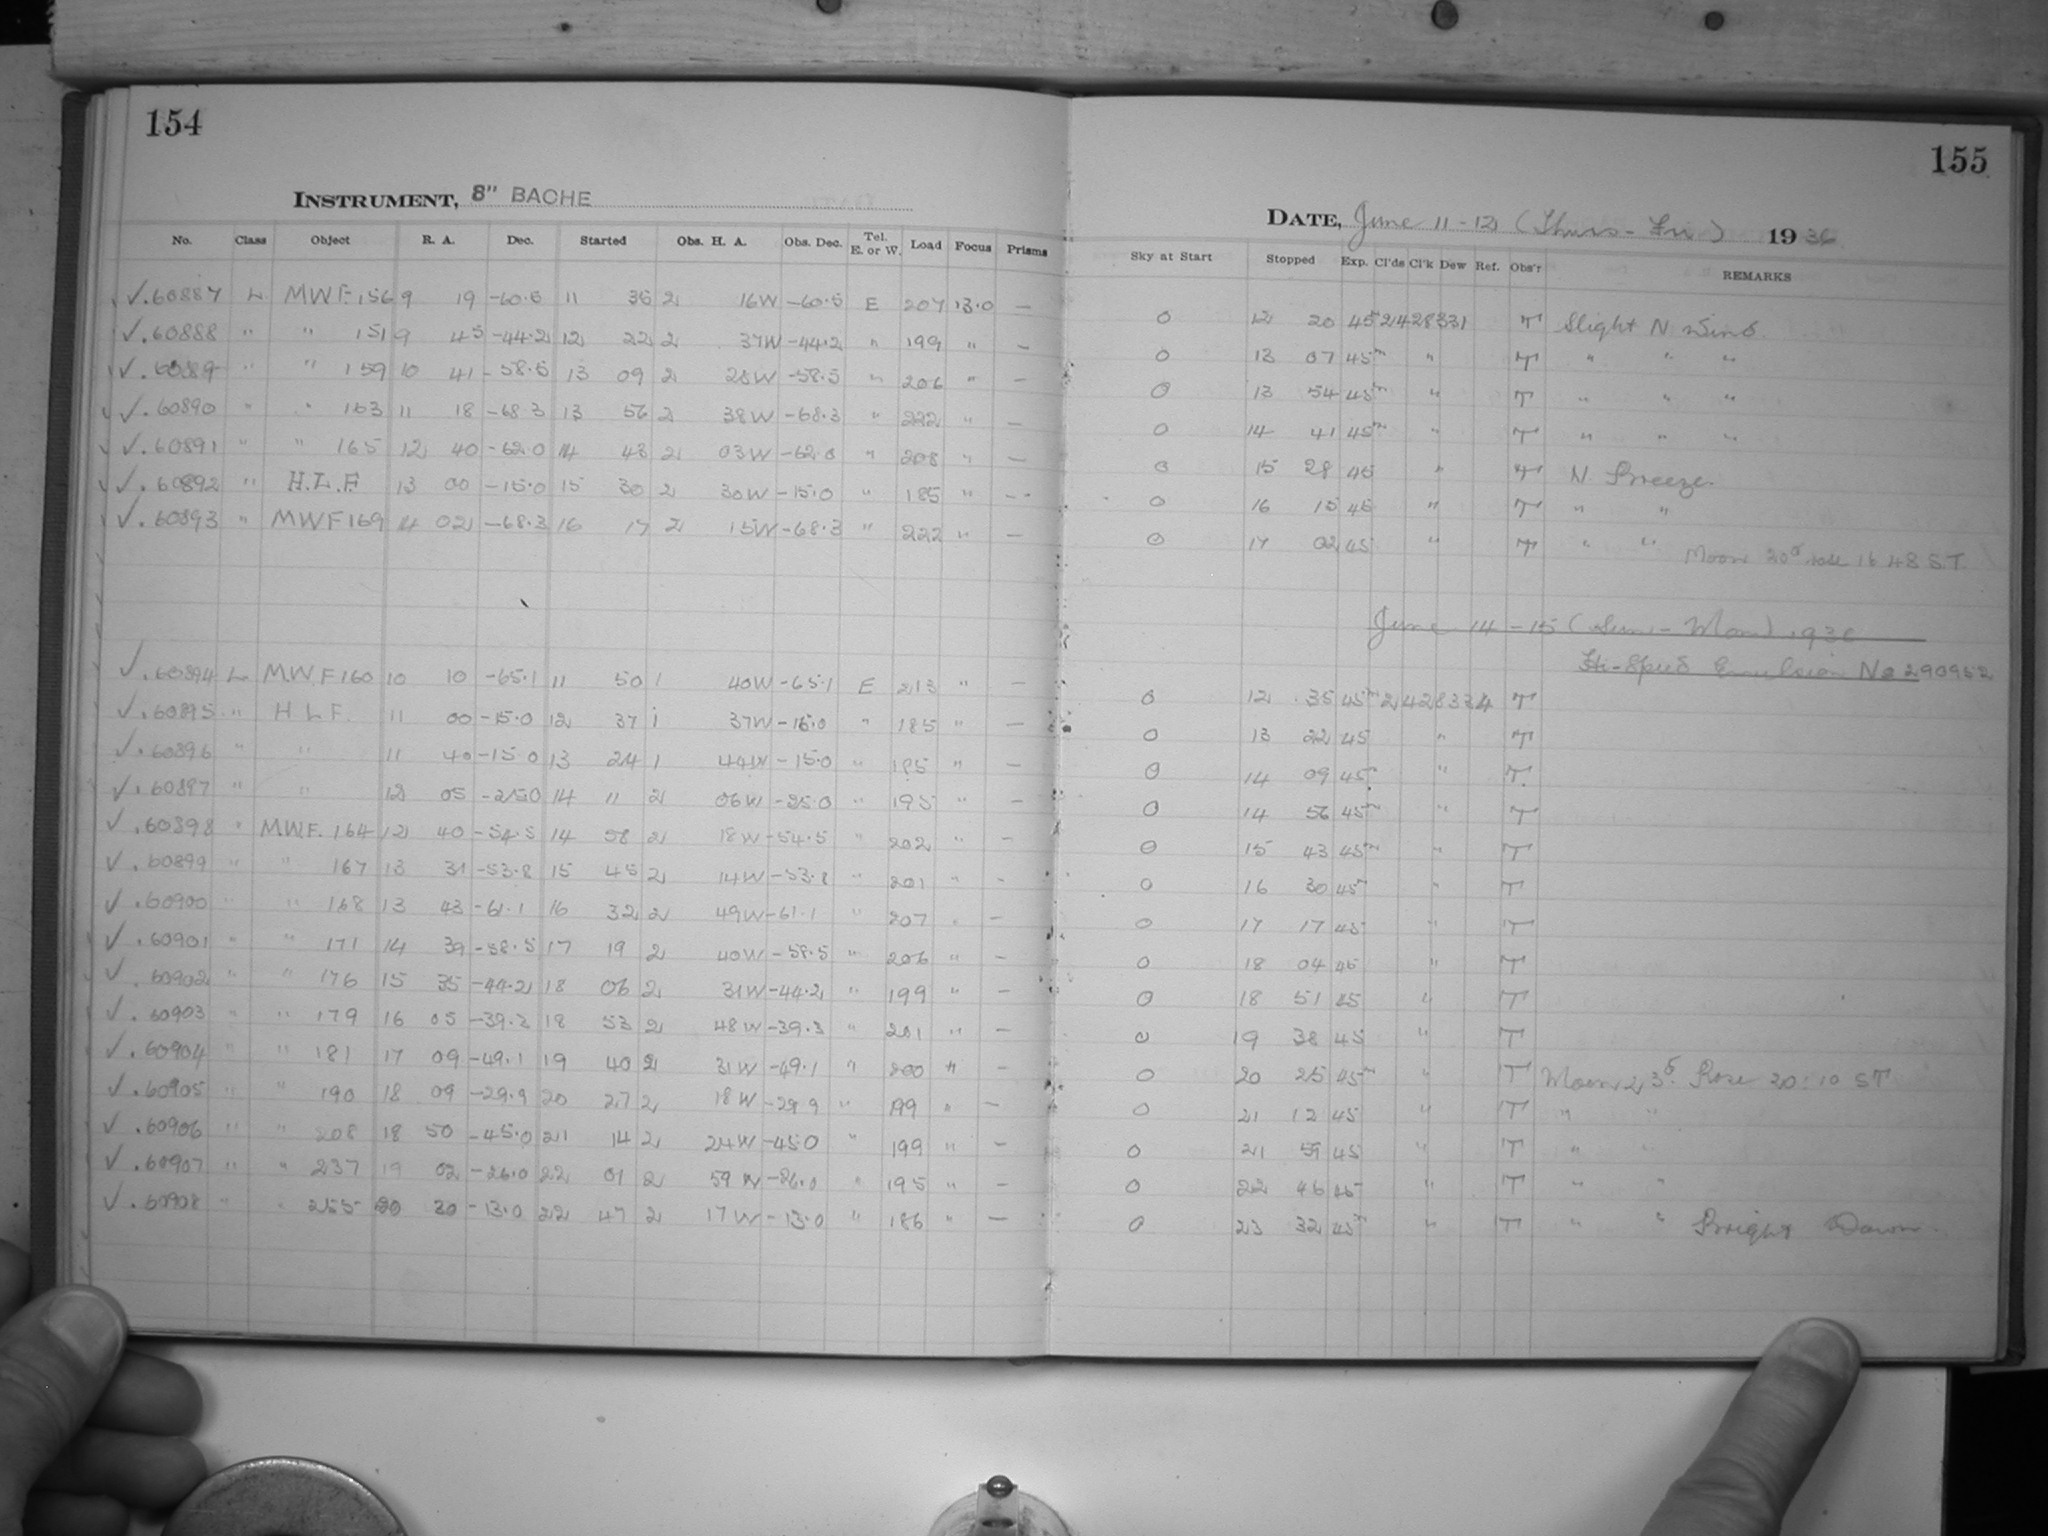 154
INSTRUMENT, 8" BACHE
No. Class Object R. A. Dec. Started Obs. H. A. Obs. Dec. Tel. E. or W. Load Focus Prisms
✓.60887 L MWF 156 9 19 -60.5 11 35 2 16W -60.5 E 207 13.0 —
✓.60888 " " 151 9 45 -44.2 12 22 2 37W -44.2 " 199 " —
✓.60889 " " 159 10 41 -58.5 13 09 2 28W -58.5 " 206 " —
✓.60890 " " 163 11 18 -68.3 13 56 2 38W -68.3 " 222 " —
✓.60891 " " 165 12 40 -62.0 14 43 2 03W -62.0 " 208 " —
✓.60892 " H.L.F. 13 00 -15.0 15 30 2 30W -15.0 " 185 " —
✓.60893 " MWF 169 14 02 -68.3 16 17 2 15W -68.3 " 222 " —
✓.60894 L MWF 160 10 10 -65.1 11 50 1 40W -65.1 E 213 " —
✓.60895 " H L F. 11 00 -15.0 12 37 1 37W -15.0 " 185 " —
✓.60896 " " 11 40 -15.0 13 24 1 44W -15.0 " 185 " —
✓.60897 " " 12 05 -25.0 14 11 2 06W -25.0 " 195 " —
✓.60898 " MWF. 164 12 40 -54.5 14 58 2 18W -54.5 " 202 " —
✓.60899 " " 167 13 31 -53.8 15 45 2 14W -53.8 " 201 " -
✓.60900 " " 168 13 43 -61.1 16 32 2 49W -61.1 " 207 " —
✓.60901 " " 171 14 39 -58.5 17 19 2 40W -58.5 " 206 " —
✓.60902 " " 176 15 35 -44.2 18 06 2 31W -44.2 " 199 " —
✓.60903 " " 179 16 05 -39.3 18 53 2 48W -39.3 " 201 " —
✓.60904 " " 181 17 09 -49.1 19 40 2 31W -49.1 " 200 " —
✓.60905 " " 190 18 09 -29.9 20 27 2 18W -29.9 " 199 " —
✓.60906 " " 208 18 50 -45.0 21 14 2 24W -45.0 " 199 " —
✓.60907 " " 237 19 02 -26.0 22 01 2 59W -26.0 " 195 " —
✓.60908 " " 255 20 30 -13.0 22 47 2 17W -13.0 " 186 " —
155
DATE, June 11-12 (Thurs-Fri) 1936
Sky at Start Stopped Exp. Cl'ds Cl'k Dew Ref. Obs'r REMARKS
0 12 20 45 2428331 T Slight N Wind
0 13 07 45m " T " " "
0 13 54 45m " T " " "
0 14 41 45m " T " " "
0 15 28 45 " T N Breeze
0 16 15 45 " T " "
0 17 02 45 " T " " Moon 20d rose 16 48 S.T.
June 14-15 (Sun-Mon) 1936
Hi-Speed Emulsion No 290952
0 12 35 45m 2428334 T
0 13 22 45 " T
0 14 09 45 " T.
0 14 56 45m " T
0 15 43 45m " T
0 16 30 45 " T
0 17 17 45 " T
0 18 04 45 " T
0 18 51 45 " T
0 19 38 45 " T
0 20 25 45m " T Moon 23d. Rose 20:10 ST
0 21 12 45 " T " "
0 21 59 45 " T " "
0 22 46 45 " T " "
0 23 32 45m " T " " Bright Dawn